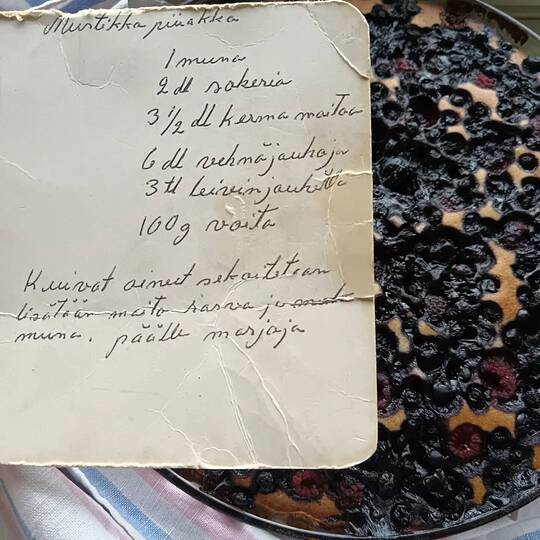 Mustikka piirakka
1 muna
2 dl sokeria
3 1/2 dl kerma maitoa
6 dl vehnäjauhoja
3 tl leivinjauhetta
100g voita
Kuivat aineet sekoitetaan
lisätään maito rasva ja
muna. päälle marjoja